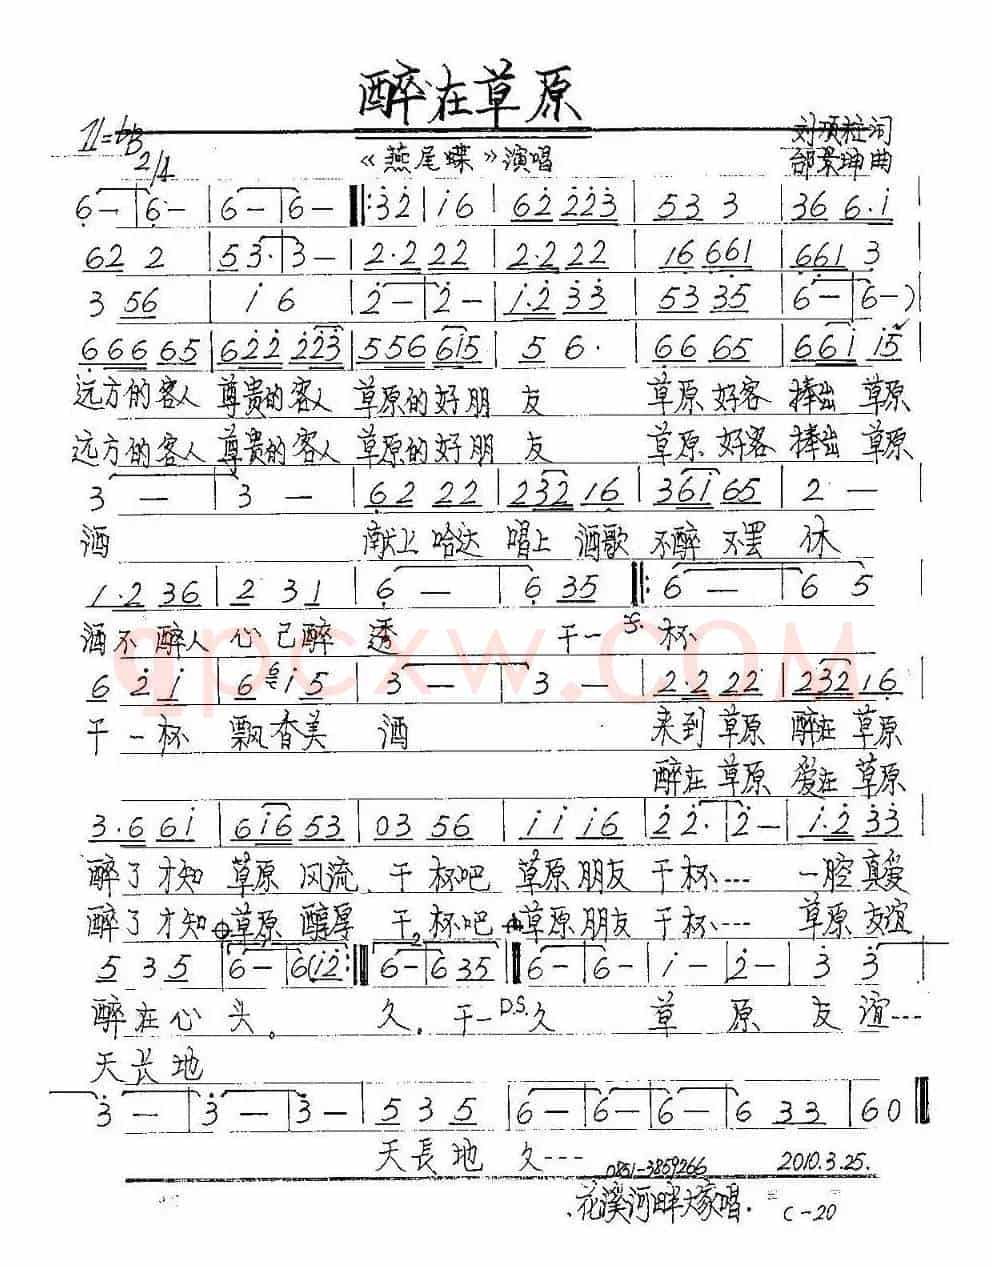 醉在草原
1=bB 2/4
《燕尾蝶》演唱
刘顶柱词
邰景坤曲
6- | 6- | 6- | 6- ‖: 32 | i6 | 62 223 | 53 3 | 36 6·i
62 2 | 53· | 3- | 2·2 22 | 2·2 22 | 16 661 | 661 3
3 56 | i 6 | 2- | 2- | i·2 33 | 53 35 | 6- | 6-)
666 65 | 622 223 | 556 6i5 | 5 6· | 66 65 | 66i i5
远方的客人 尊贵的客人 草原的好朋 友 草原 好客 捧出 草原
远方的客人 尊贵的客人 草原的好朋 友 草原 好客 捧出 草原
3 - | 3 - | 62 22 | 232 16 | 36i 65 | 2 -
酒 献上 哈达 唱上 酒歌 不醉 不罢 休
1·2 36 | 2 3 1 | 6 - | 6 35 ‖: 6 - | 6 5
酒不 醉人 心 己 醉 透 干一 杯
6 2 i | 6 i 5 | 3 - | 3 - | 22 22 | 232 16
干 一 杯 飘 香 美 酒 来到 草原 醉在 草原
醉在 草原 爱在 草原
3·6 6i | 6i6 53 | 03 56 | i i i6 | 2 2· | 2 - | i·2 33
醉了 才知 草原 风流 干 杯吧 草原 朋友 干杯--- 一腔 真爱
醉了 才知 草原 醇厚 干 杯吧 草原 朋友 干杯--- 草原 友谊
5 3 5 | 6- | 6(i2 :‖ 6- | 6 35 ‖ 6- | 6- | i- | 2- | 3 3
醉 在 心 头。 久。 干一 D.S. 久 草 原 友 谊---
天 长 地
3 - | 3 - | 3 - | 5 3 5 | 6- | 6- | 6- | 6 33 | 60 ‖
天 長 地 久---
0851-3859266
2010.3.25.
花溪河畔大家唱.
C-20
qpcxw.COM